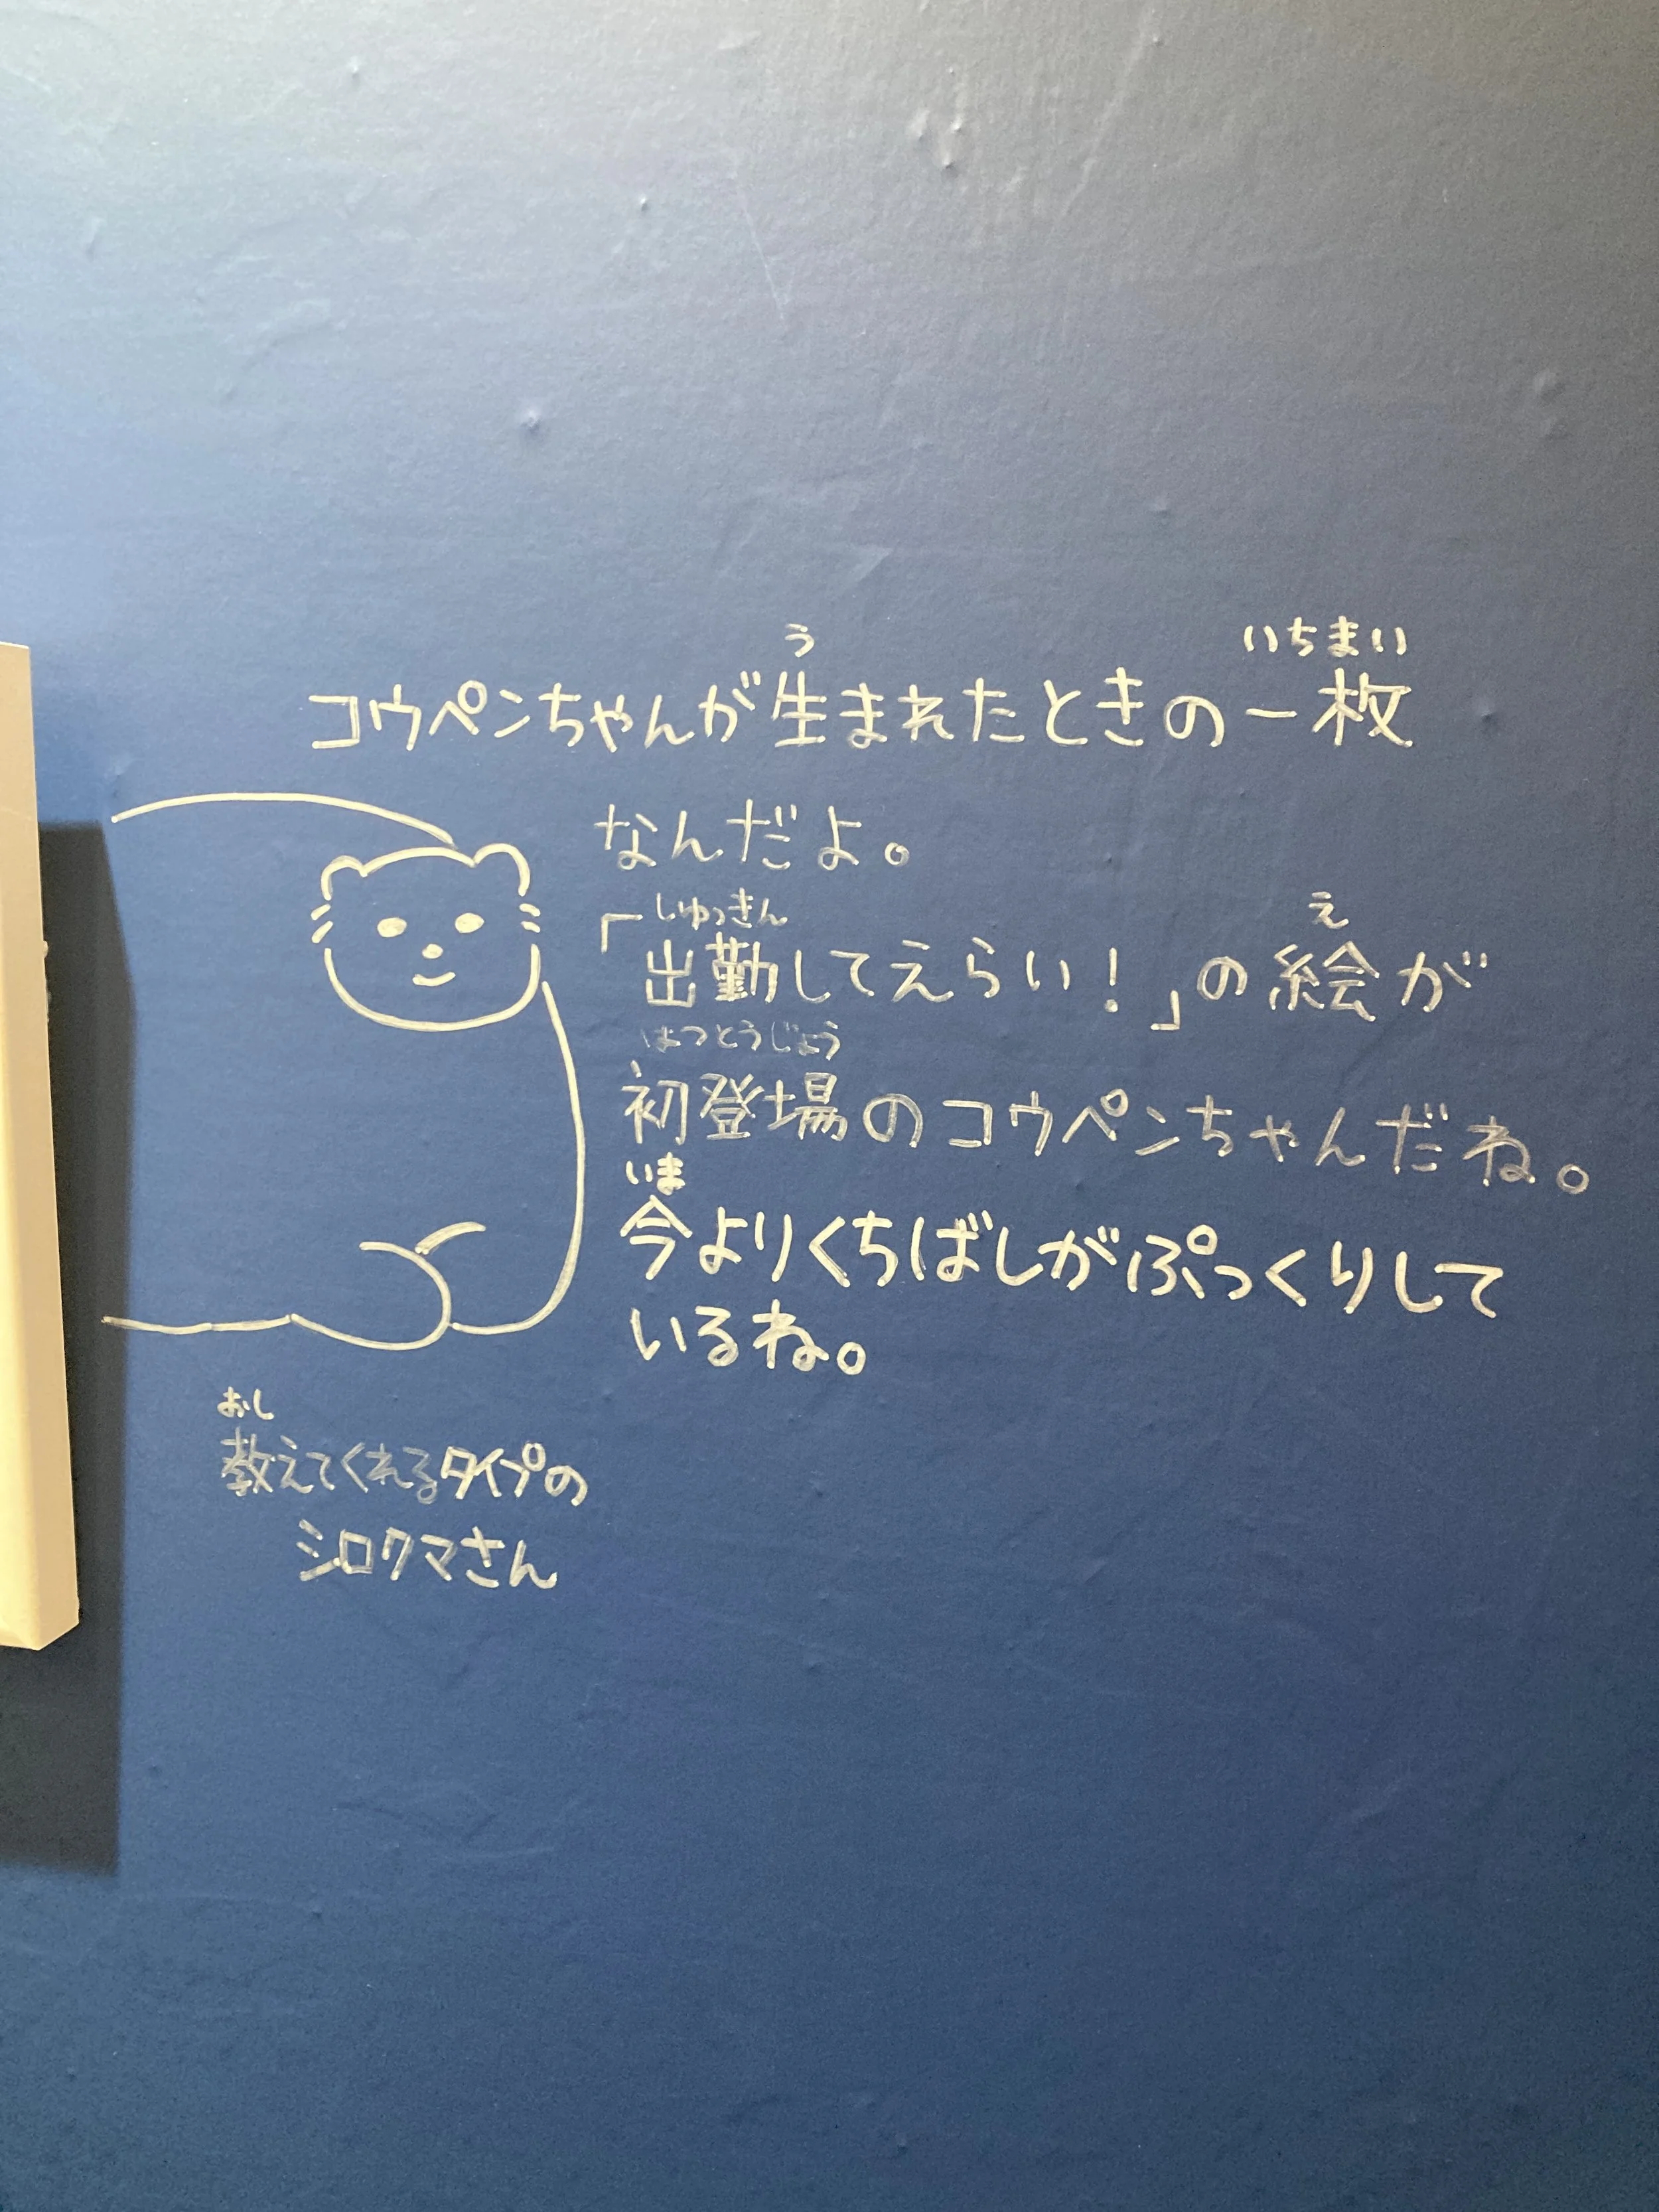 コウペンちゃんが生まれたときの一枚
なんだよ。
「出勤してえらい！」の絵が
初登場のコウペンちゃんだね。
今よりくちばしがぷっくりして
いるね。
教えてくれるタイプの
シロクマさん
う
いちまい
しゅっきん
え
はつとうじょう
いま
おし